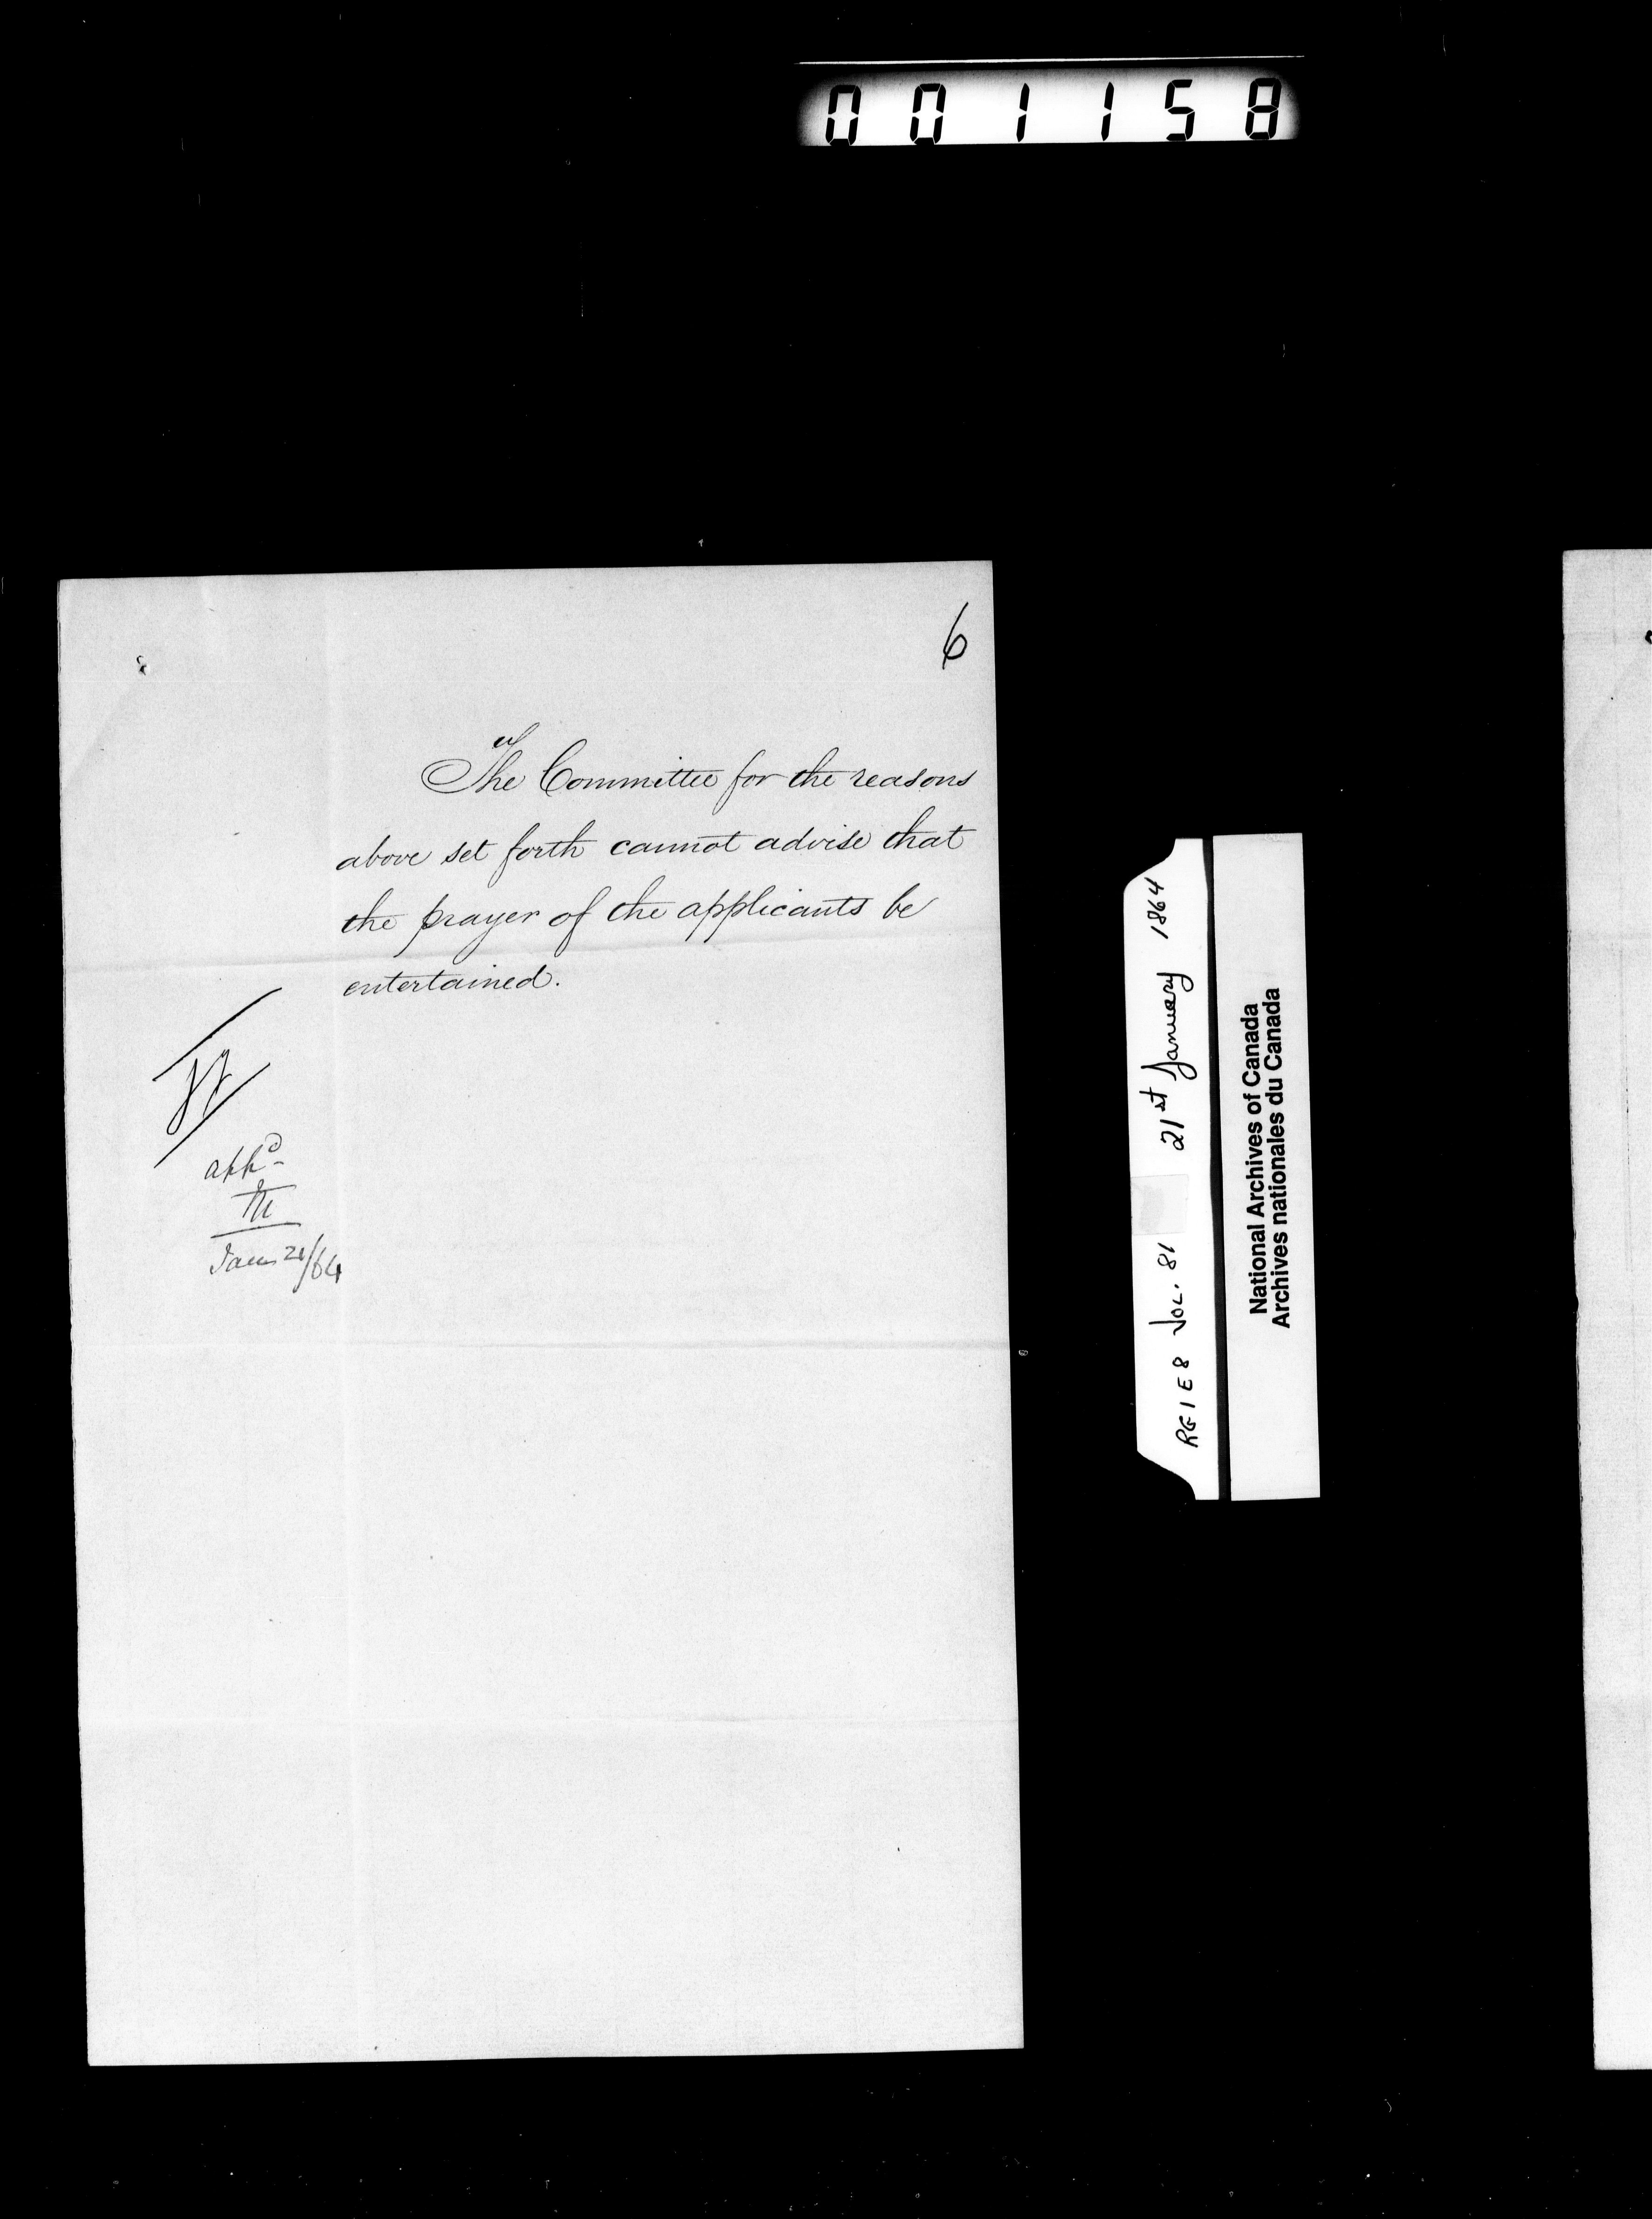 001158
6
The Committee for the reasons
above set forth cannot advise that
the prayer of the applicants be
entertained.
appd
Jany 21/64
RG 1 E 8 VOL. 81 21st January 1864
National Archives of Canada
Archives nationales du Canada